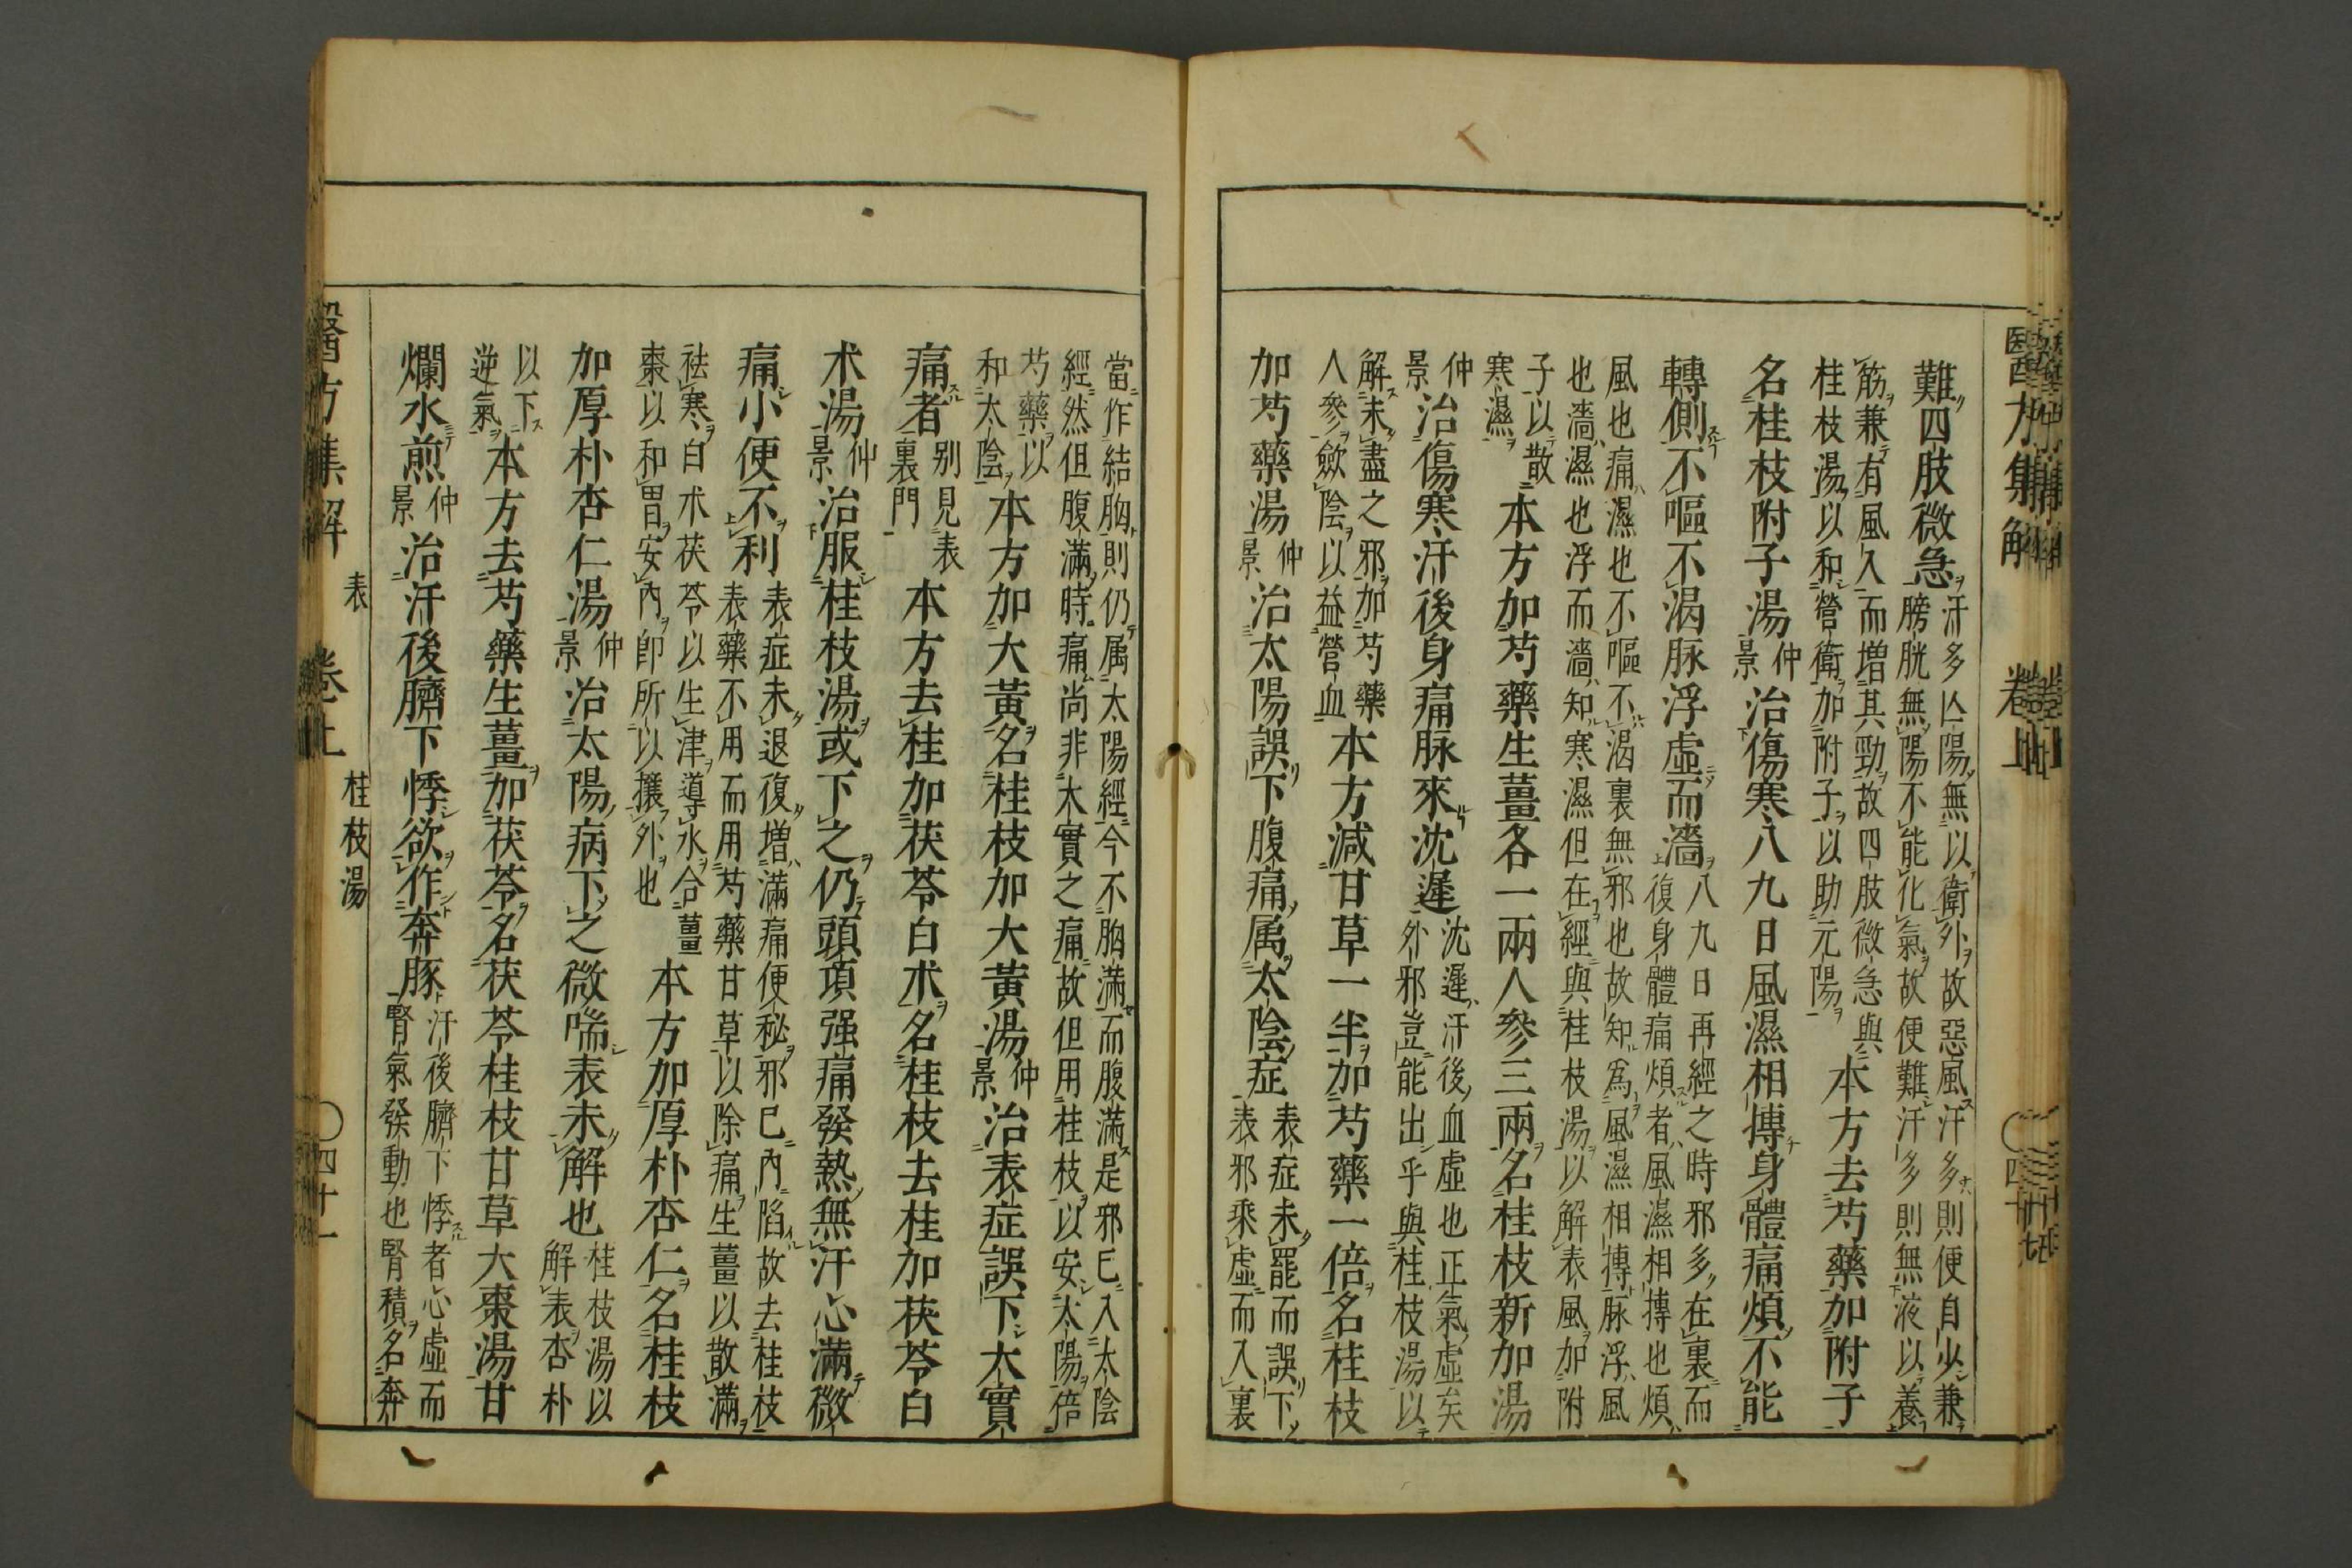 醫方集解 卷上 〇四十
難四肢微急汗多亾陽無以衛外故惡風汗多則便自少兼膀胱無陽不能化氣故便難汗多則無液以養
筋兼有風入而增其勁故四肢微急與桂枝湯以和營衛加附子以助元陽本方去芍藥加附子
名桂枝附子湯仲景治傷寒八九日風濕相摶身體痛煩不能
轉側不嘔不渴脉浮虛而濇八九日再經之時邪多在裏而復身體痛煩者風濕相摶也煩
風也痛濕也不嘔不渴裏無邪也故知爲風濕相摶脉浮風也濇濕也浮而濇知寒濕但在經與桂枝湯以解表風加附
子以散寒濕本方加芍藥生薑各一兩人參三兩名桂枝新加湯
仲景治傷寒汗後身痛脉來沈遲沈遲汗後血虛也正氣虛矣外邪豈能出乎與桂枝湯以
解未盡之邪加芍藥人參斂陰以益營血本方減甘草一半加芍藥一倍名桂枝
加芍藥湯仲景治太陽誤下腹痛属太陰症表症未罷而誤下表邪乘虛而入裏
當作結胸則仍属太陽經今不胸滿而腹滿是邪已入太陰經然但腹滿時痛尚非大實之痛故但用桂枝以安太陽倍
芍藥以和太陰本方加大黃名桂枝加大黃湯仲景治表症誤下大實
痛者別見表裏門本方去桂加茯苓白朮名桂枝去桂加茯苓白
朮湯仲景治服桂枝湯或下之仍頭項强痛發熱無汗心滿微
痛小便不利表症未退復增滿痛便秘邪已內陷故去桂枝表藥不用而用芍藥甘草以除痛生薑以散滿
祛寒白朮茯苓以生津導水合薑棗以和胃安內卽所以攘外也本方加厚朴杏仁名桂枝
加厚朴杏仁湯仲景治太陽病下之微喘表未解也桂枝湯以解表杏朴
以下逆氣本方去芍藥生薑加茯苓名茯苓桂枝甘草大棗湯甘
爛水煎仲景治汗後臍下悸欲作奔豚汗後臍下悸者心虛而腎氣發動也腎積名奔
醫方集解 表 卷上 桂枝湯 〇四十一